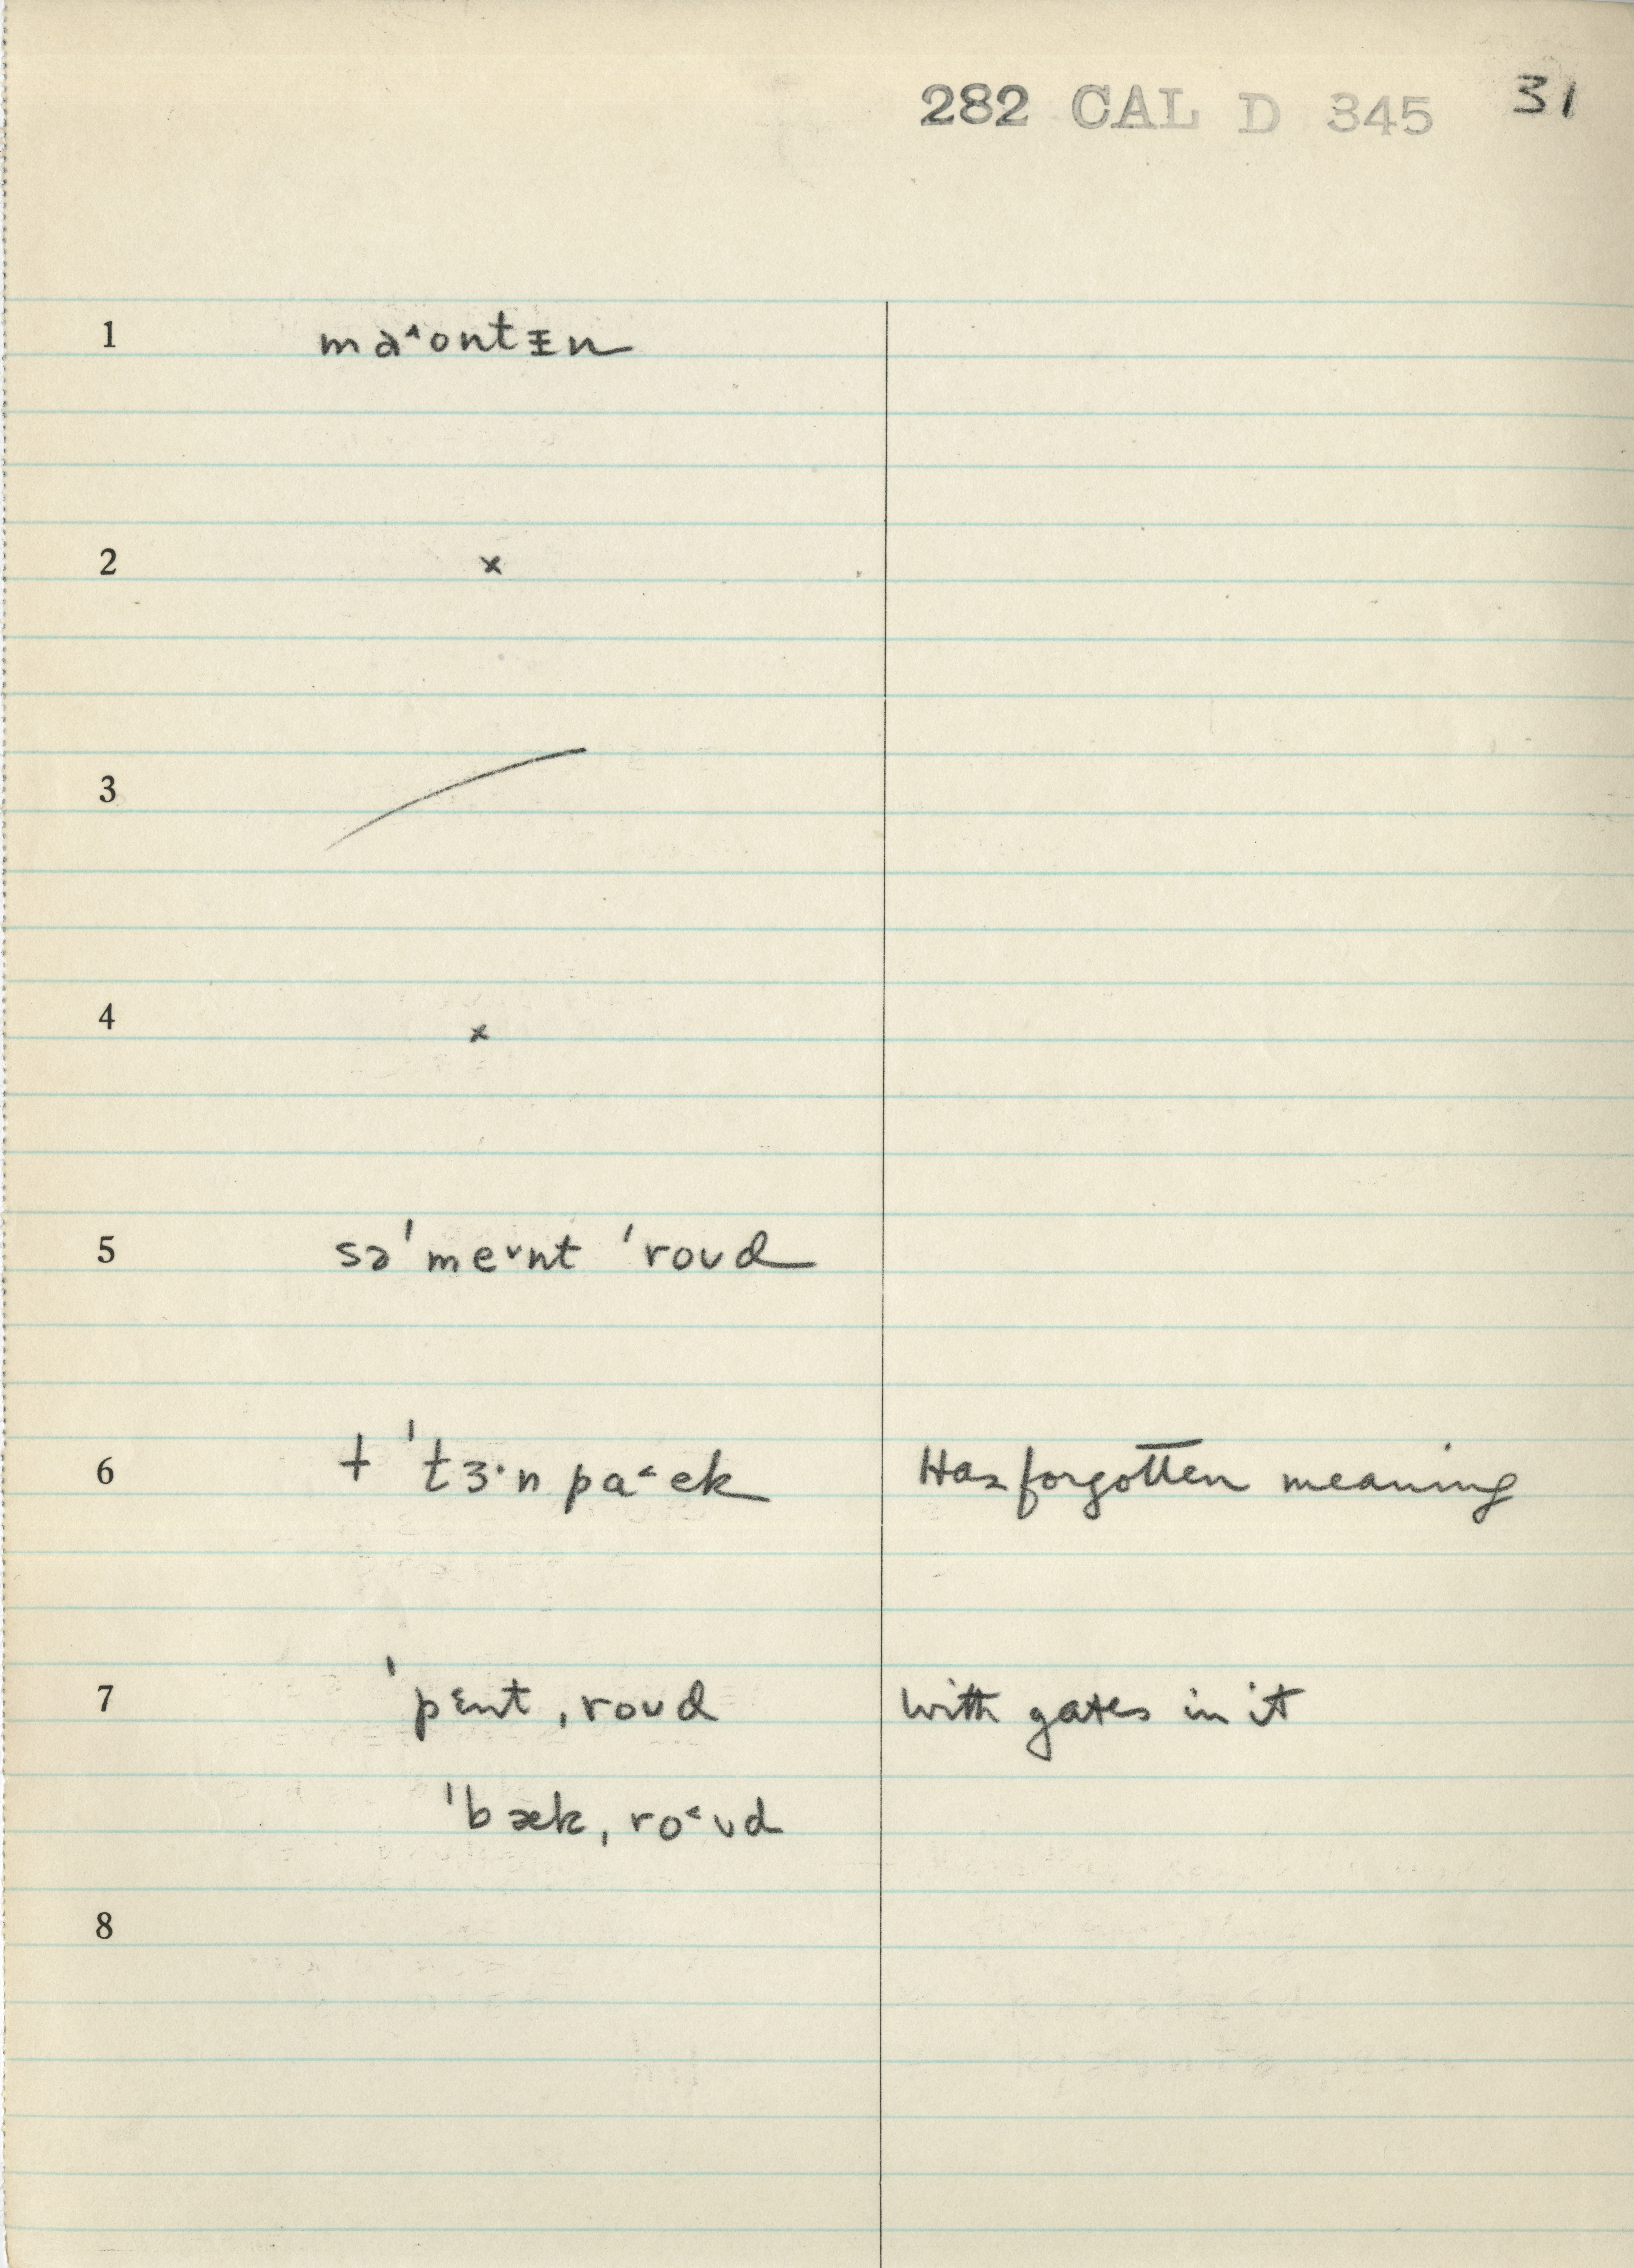 282 CAL D 345 31
1 ma˄ontᵻn
2 x
3
4 x
5 sə'me˅nt 'roʊd
6 † 'tɜ·n pa˂ek Has forgotten meaning
7 'pɛnt ˌroʊd with gates in it
'bæk ˌro˂ʊd
8